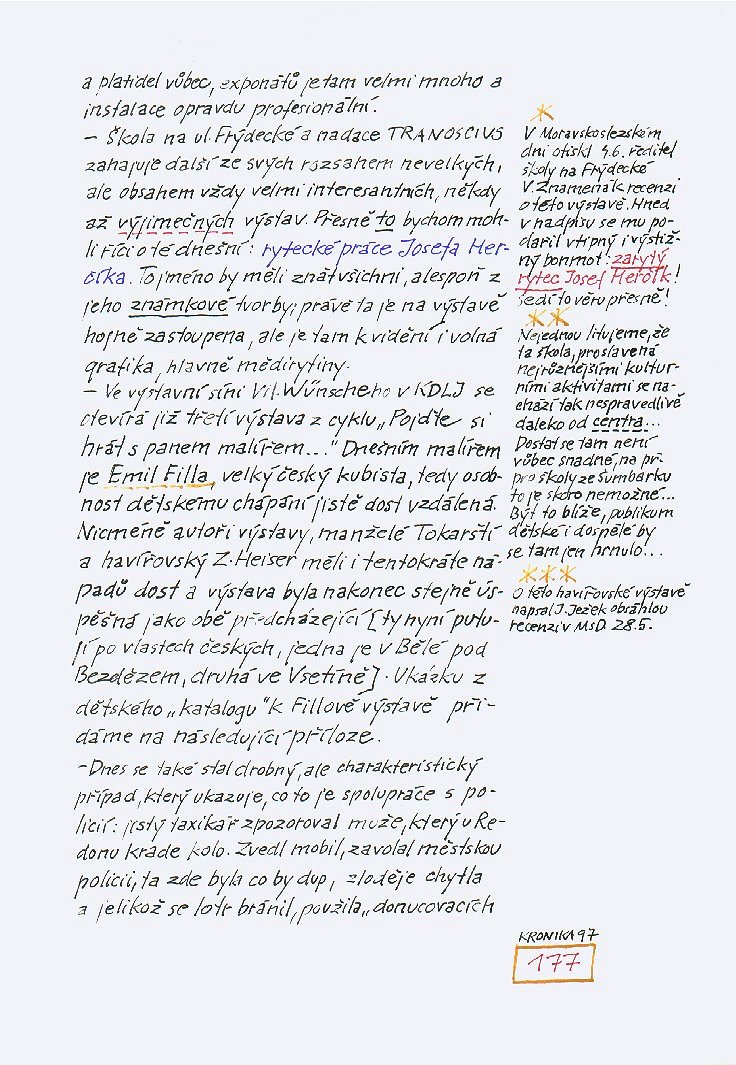 a platidel vůbec, exponátů je tam velmi mnoho a
instalace opravdu profesionální.
– Škola na ul. Frýdecké a nadace TRANOSCIUS
zahajuje další ze svých rozsahem nevelkých,
ale obsahem vždy velmi interesantních, někdy
až výjimečných výstav. Přesně to bychom moh-
li říci o té dnešní: rytecké práce Josefa Her-
číka. To jméno by měli znát všichni, alespoň z
jeho známkové tvorby; právě ta je na výstavě
hojně zastoupena, ale je tam k vidění i volná
grafika, hlavně mědirytiny.
– Ve výstavní síni Vil. Wünscheho v KDLJ se
otevírá již třetí výstava z cyklu „Pojďte si
hrát s panem malířem..." Dnešním malířem
je Emil Filla, velký český kubista, tedy osob-
nost dětskému chápání jistě dost vzdálená.
Nicméně autoři výstavy, manželé Tokarští
a havířovský Z. Heiser měli i tentokráte ná-
padů dost a výstava byla nakonec stejně ús-
pěšná jako obě předcházející [ty nyní putu-
jí po vlastech českých, jedna je v Bělé pod
Bezdězem, druhá ve Vsetíně]. Ukázku z
dětského „katalogu" k Fillově výstavě při-
dáme na následující příloze.
– Dnes se také stal drobný, ale charakteristický
případ, který ukazuje, co to je spolupráce s po-
licií: jistý taxikář zpozoroval muže, který u Re-
donu krade kolo. Zvedl mobil, zavolal městskou
policii, ta zde byla co by dup, zloděje chytla
a jelikož se lotr bránil, použila „donucovacích
*
V Moravskoslezském
dni otiskl 4.6. ředitel
školy na Frýdecké
V. Znamenák recenzi
o této výstavě. Hned
v nadpisu se mu po-
dařil vtipný i výstiž-
ný bonmot: zarytý
rytec Josef Herčík!
Sedí to věru přesně!
**
Nejednou litujeme, že
ta škola, proslavená
nejrůznějšími kultur-
ními aktivitami se na-
chází tak nespravedlivě
daleko od centra...
Dostat se tam není
vůbec snadné, na př.
pro školy ze Šumbarku
to je skoro nemožné...
Být to blíže, publikum
dětské i dospělé by
se tam jen hrnulo...
***
O této havířovské výstavě
napsal J. Ježek obsáhlou
recenzi v MsD 28.5.
KRONIKA 97
177